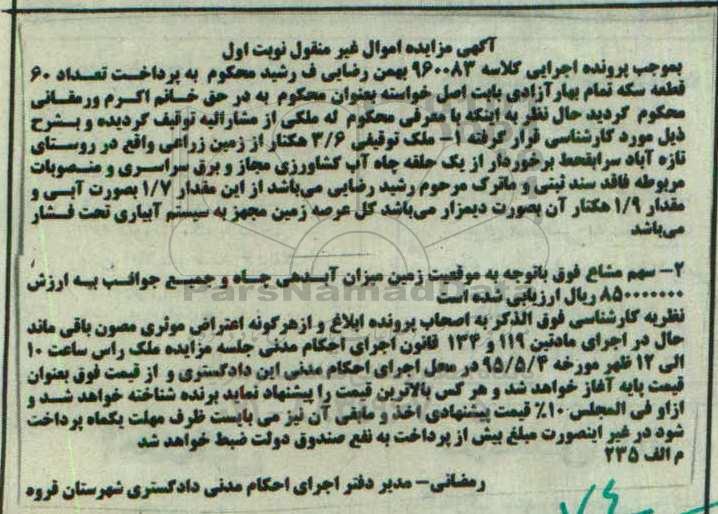 آگهی مزایده اموال غیر منقول نوبت اول
بموجب پرونده اجرایی کلاسه ۹۶۰۰۸۳ بهمن رضایی ف رشید محکوم به پرداخت تعداد ۶۰
قطعه سکه تمام بهار آزادی بابت اصل خواسته بعنوان محکوم به در حق خانم اکرم ورمقانی
محکوم گردید حال نظر به اینکه با معرفی محکوم له ملکی از مشارالیه توقیف گردیده و بشرح
ذیل مورد کارشناسی قرار گرفته ۱- ملک توقیفی ۳/۶ هکتار از زمین زراعی واقع در روستای
تازه آباد سرابقحط برخوردار از یک حلقه چاه آب کشاورزی مجاز و برق سراسری و منصوبات
مربوطه فاقد سند ثبتی و ماترک مرحوم رشید رضایی می‌باشد از این مقدار ۱/۷ بصورت آبی و
مقدار ۱/۹ هکتار آن بصورت دیمزار می‌باشد کل عرصه زمین مجهز به سیستم آبیاری تحت فشار
می‌باشد
۲- سهم مشاع فوق باتوجه به موقعیت زمین میزان آبدهی چاه و جمیع جوانب به ارزش
۸۵۰۰۰۰۰۰۰ ریال ارزیابی شده است
ParsNamadData
نظریه کارشناسی فوق الذکر به اصحاب پرونده ابلاغ و ازهرگونه اعتراض موثری مصون باقی ماند
حال در اجرای مادتین ۱۱۹ و ۱۳۴ قانون اجرای احکام مدنی جلسه مزایده ملک راس ساعت ۱۰
الی ۱۲ ظهر مورخه ۹۵/۵/۴ در محل اجرای احکام مدنی این دادگستری و از قیمت فوق بعنوان
قیمت پایه آغاز خواهد شد و هر کس بالاترین قیمت را پیشنهاد نماید برنده شناخته خواهد شد و
ازاو فی المجلس ۱۰٪ قیمت پیشنهادی اخذ و مابقی آن نیز می بایست ظرف مهلت یکماه پرداخت
شود در غیر اینصورت مبلغ بیش از پرداخت به نفع صندوق دولت ضبط خواهد شد
م الف ۲۳۵
رمضانی- مدیر دفتر اجرای احکام مدنی دادگستری شهرستان قروه